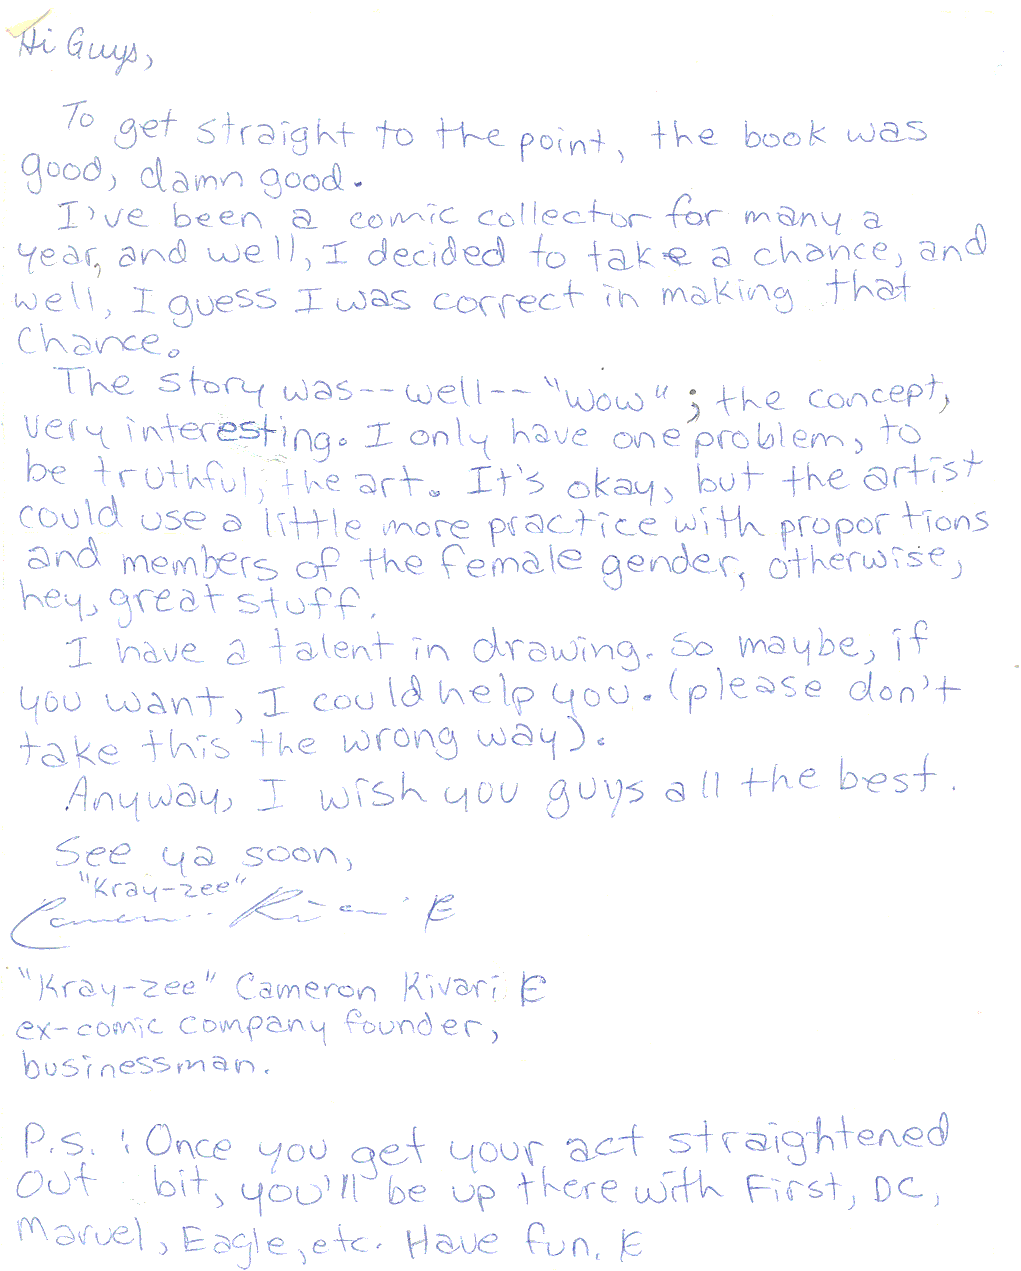 Hi Guys,
To get straight to the point, the book was
good, damn good.
I've been a comic collector for many a
year, and well, I decided to take a chance, and
well, I guess I was correct in making that
chance.
The story was--well--"wow"; the concept,
very interesting. I only have one problem, to
be truthful, the art. It's okay, but the artist
could use a little more practice with proportions
and members of the female gender, otherwise,
hey, great stuff.
I have a talent in drawing. So maybe, if
you want, I could help you. (please don't
take this the wrong way).
Anyway, I wish you guys all the best.
See ya soon,
"Kray-zee"
Cameron Kivari E
"Kray-zee" Cameron Kivari E
ex-comic company founder,
businessman.
P.S.: Once you get your act straightened
out bit, you'll be up there with First, DC,
Marvel, Eagle, etc. Have fun. E